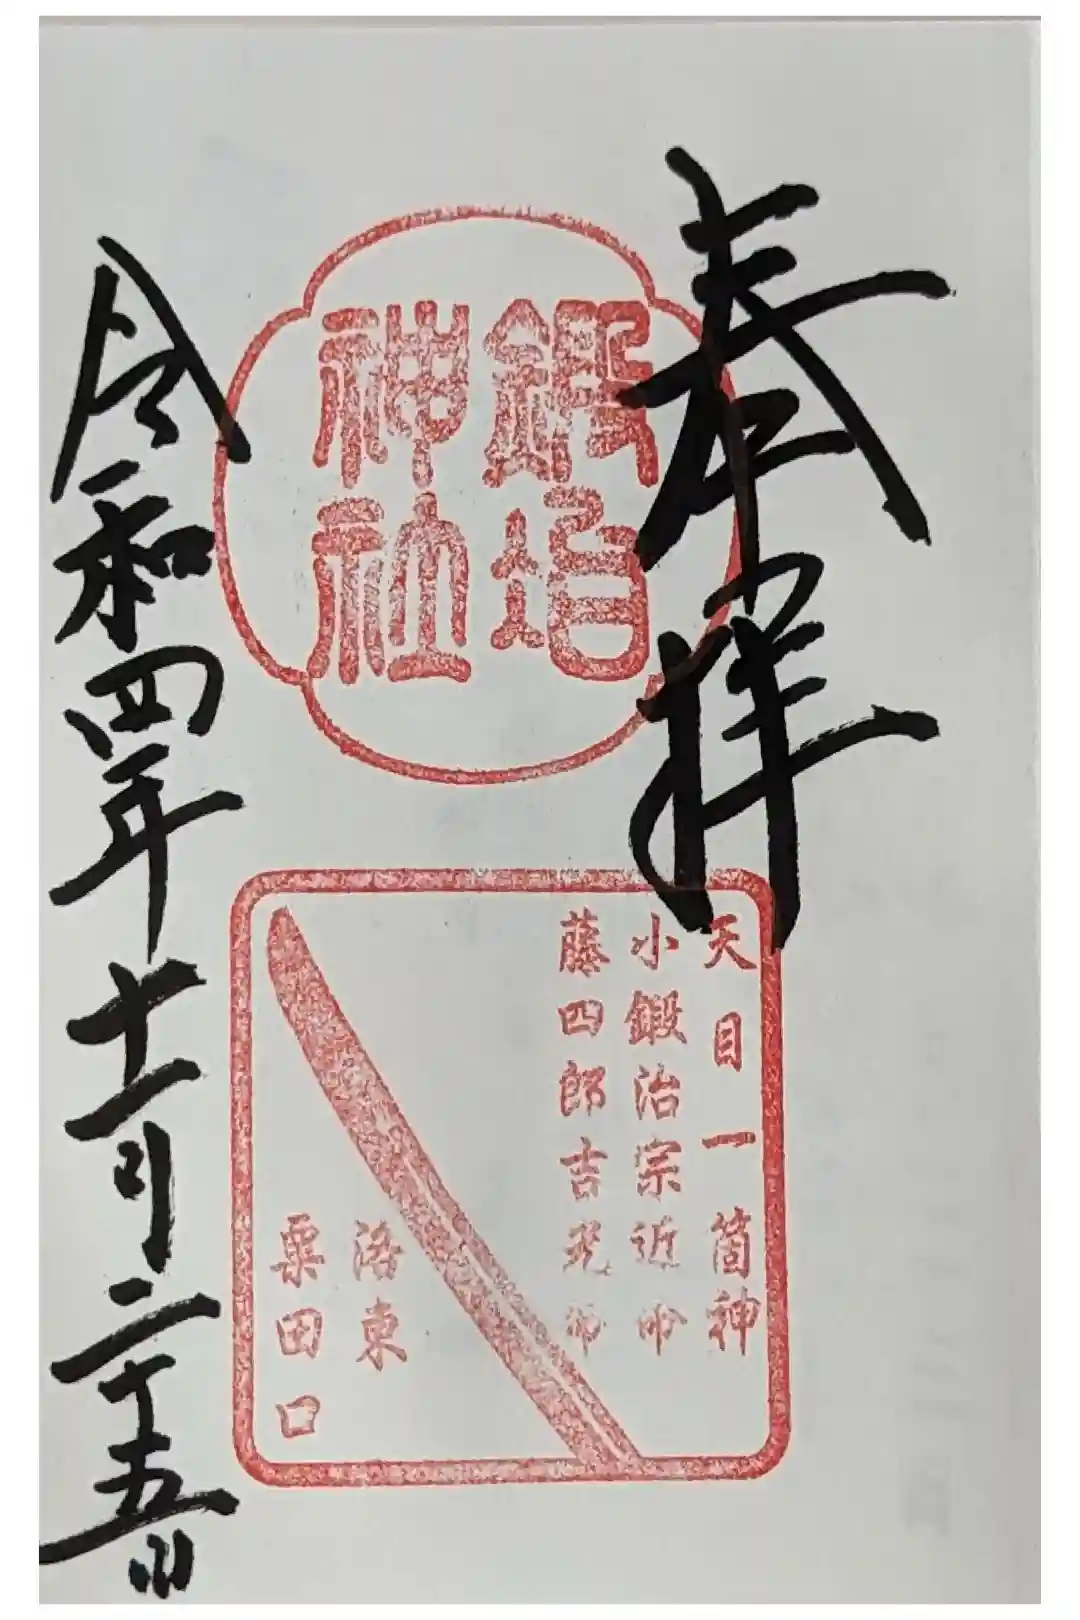 奉拝
鍛冶
神社
天目一箇神
小鍛治宗近命
藤四郎吉光命
洛東
粟田口
令和四年十一月二十五日